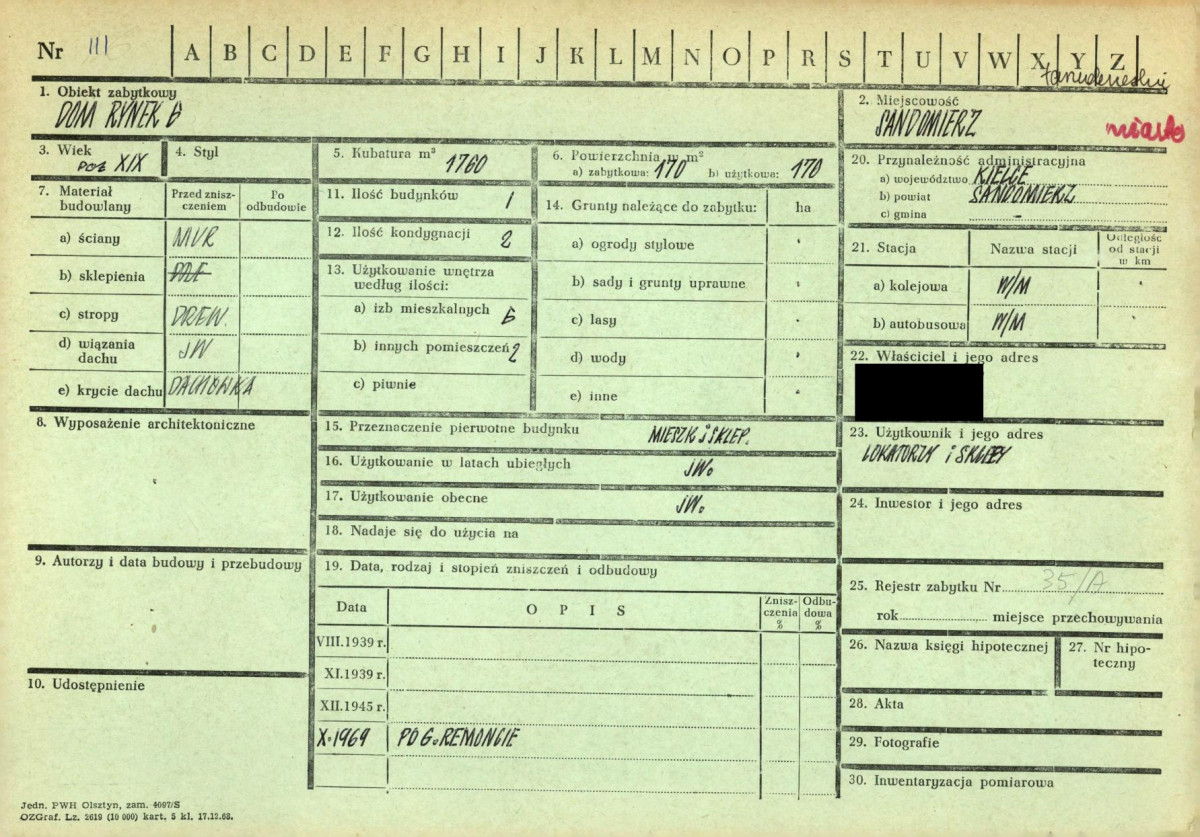 Nr III A B C D E F G H I J K L M N O P R S T U V W X Y Z
1. Obiekt zabytkowy
DOM RYNEK 6
2. Miejscowość
SANDOMIERZ
miasto
3. Wiek
pocz XIX
4. Styl
5. Kubatura m³ 1760
6. Powierzchnia w m²
a) zabytkowa: 170 b) użytkowa: 170
20. Przynależność administracyjna
a) województwo KIELCE
b) powiat SANDOMIERZ
c) gmina -
7. Materiał budowlany
Przed zniszczeniem
Po odbudowie
a) ściany MUR
b) sklepienia
c) stropy DREW.
d) wiązania dachu JW
e) krycie dachu DACHÓWKA
11. Ilość budynków 1
12. Ilość kondygnacji 2
13. Użytkowanie wnętrza
według ilości:
a) izb mieszkalnych 6
b) innych pomieszczeń 2
c) piwnic
14. Grunty należące do zabytku: ha
a) ogrody stylowe
b) sady i grunty uprawne
c) lasy
d) wody
e) inne
21. Stacja
Nazwa stacji
Odległość
od stacji
w km
a) kolejowa W/M
b) autobusowa W/M
22. Właściciel i jego adres
8. Wyposażenie architektoniczne
15. Przeznaczenie pierwotne budynku MIESZK i SKLEP.
16. Użytkowanie w latach ubiegłych JW.
17. Użytkowanie obecne JW.
18. Nadaje się do użycia na
23. Użytkownik i jego adres
LOKATORZY i SKLEPY
24. Inwestor i jego adres
9. Autorzy i data budowy i przebudowy
19. Data, rodzaj i stopień zniszczeń i odbudowy
Data
OPIS
Znisz-
czenia
%
Odbu-
dowa
%
VIII.1939 r.
XI.1939 r.
XII.1945 r.
X.1969 PO G. REMONCIE
25. Rejestr zabytku Nr 35/A
rok miejsce przechowywania
26. Nazwa księgi hipotecznej
27. Nr hipo-
teczny
10. Udostępnienie
28. Akta
29. Fotografie
30. Inwentaryzacja pomiarowa
Jedn. PWH Olsztyn, zam. 4097/S
OZGraf. Lz. 2619 (10 000) kart. 5 kl. 17.12.68.